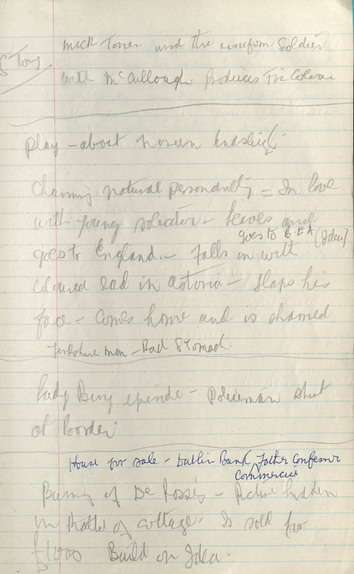 Story
Mick Toner and the uniform Soldier
with McCullough Produces Tricolour
Play - about
Charming natural personality - In love
with young solicitor - leaves and
goes to B.E.A (Idea)
goes to England - falls in with
coloured lad in Astoria - slaps his
face - Comes home and is shamed
Yorkshire man - Bad Stomach
Lady episode - Policeman shot
at border
House for sale - Dublin Bank, Father Confessor
Commercial
Burning of - Picture hidden
in of cottage. Is sold for
£1000 Build on Idea.